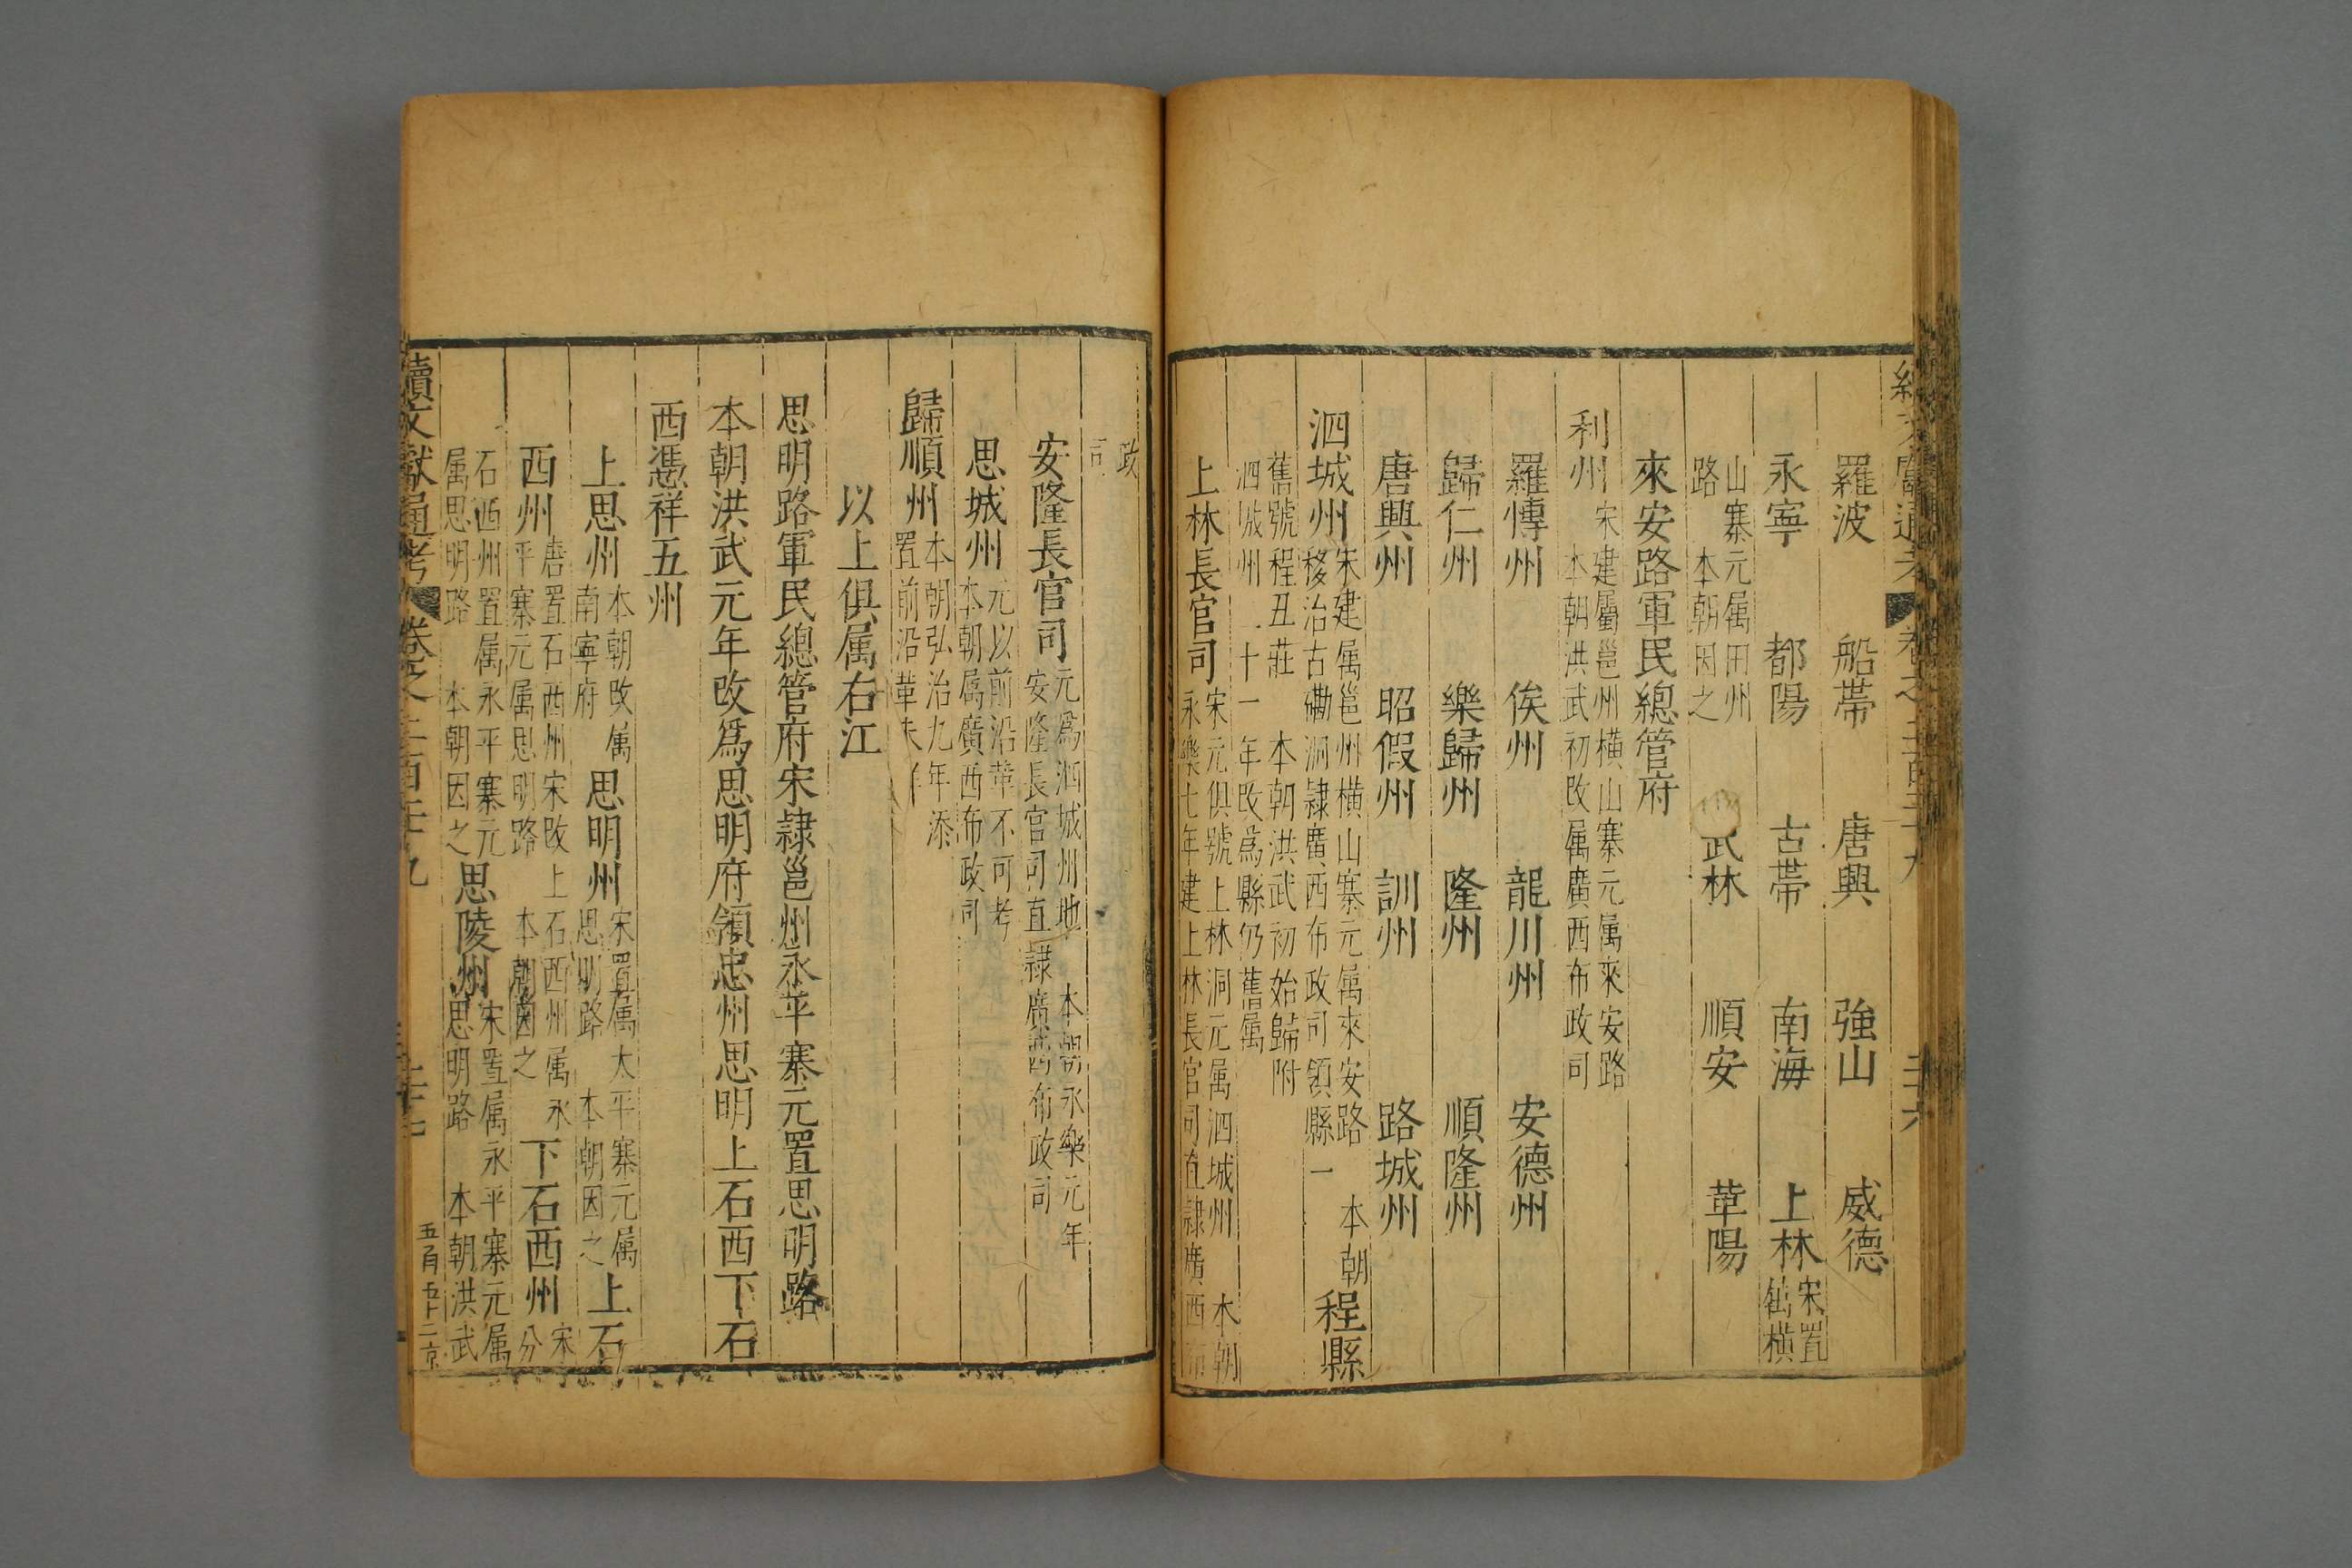 羅波 船帶 唐興 強山 威德
永寧 都陽 古帶 南海 上林 宋置
隸橫
山寨元属田州
路 本朝因之 武林 順安 華陽
來安路軍民總管府
利州 宋建屬邕州橫山寨元属來安路
本朝洪武初改属廣西布政司
羅博州 俟州 龍川州 安德州
歸仁州 樂歸州 隆州 順隆州
唐興州 昭假州 訓州 路城州
泗城州 宋建属邕州橫山寨元属來安路 本朝
移治古磡洞隸廣西布政司領縣一 程縣
舊號程丑莊 本朝洪武初始歸附
泗城州 十一年改為縣仍舊属
上林長官司 宋元俱號上林洞元属泗城州 本朝
永樂七年建上林長官司直隸廣西布
政
司
安隆長官司 元爲泗城州地 本朝永樂元年
安隆長官司直隸廣西布政司
思城州 元以前沿革不可考
本朝属廣西布政司
歸順州 本朝弘治九年添
置前沿革未詳
以上俱属右江
思明路軍民總管府宋隸邕州永平寨元置思明路
本朝洪武元年改爲思明府領忠州思明上石西下石
西憑祥五州
上思州 本朝改属
南寧府 思明州 宋置属太平寨元属
思明路 本朝因之 上石
西州 唐置石西州宋改上石西州属永
平寨元属思明路 本朝因之 下石西州 宋
分
石西州置属永平寨元
属思明路 本朝因之 思陵州 宋置属永平寨元属
思明路 本朝洪武
續文獻通考 卷之二百二十九 二十七
五百五十二 京